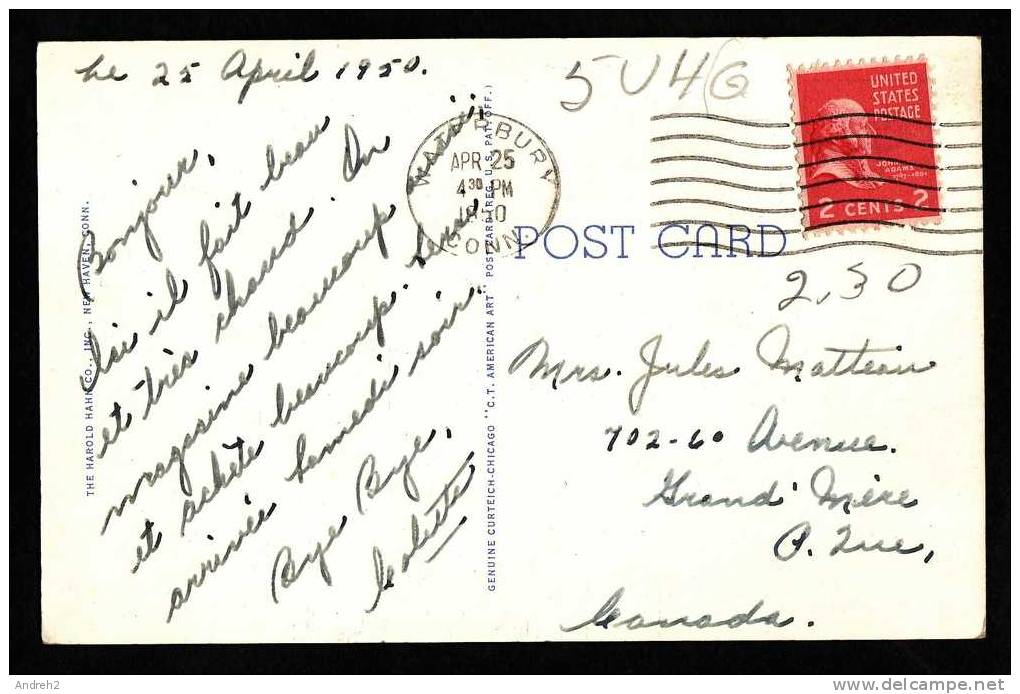 Le 25 April 1950.
Bonjour,
Ici il fait beau
et très chaud. On
magasine beaucoup
et achète beaucoup.
arrivée Samedi soir.
Bye Bye,
Colette
THE HAROLD HAHN CO., INC., NEW HAVEN, CONN.
GENUINE CURTEICH-CHICAGO "C.T. AMERICAN ART" POST CARD (REG. U.S. PAT. OFF.)
WATERBURY
APR 25
4 30 PM
1950
CONN.
5U4G
UNITED
STATES
POSTAGE
JOHN
ADAMS
2 CENTS 2
POST CARD
2,30
Mrs. Jules Matteau
702-6e Avenue.
Grand'Mère
P. Que,
Canada.
Andreh2
www.delcampe.net